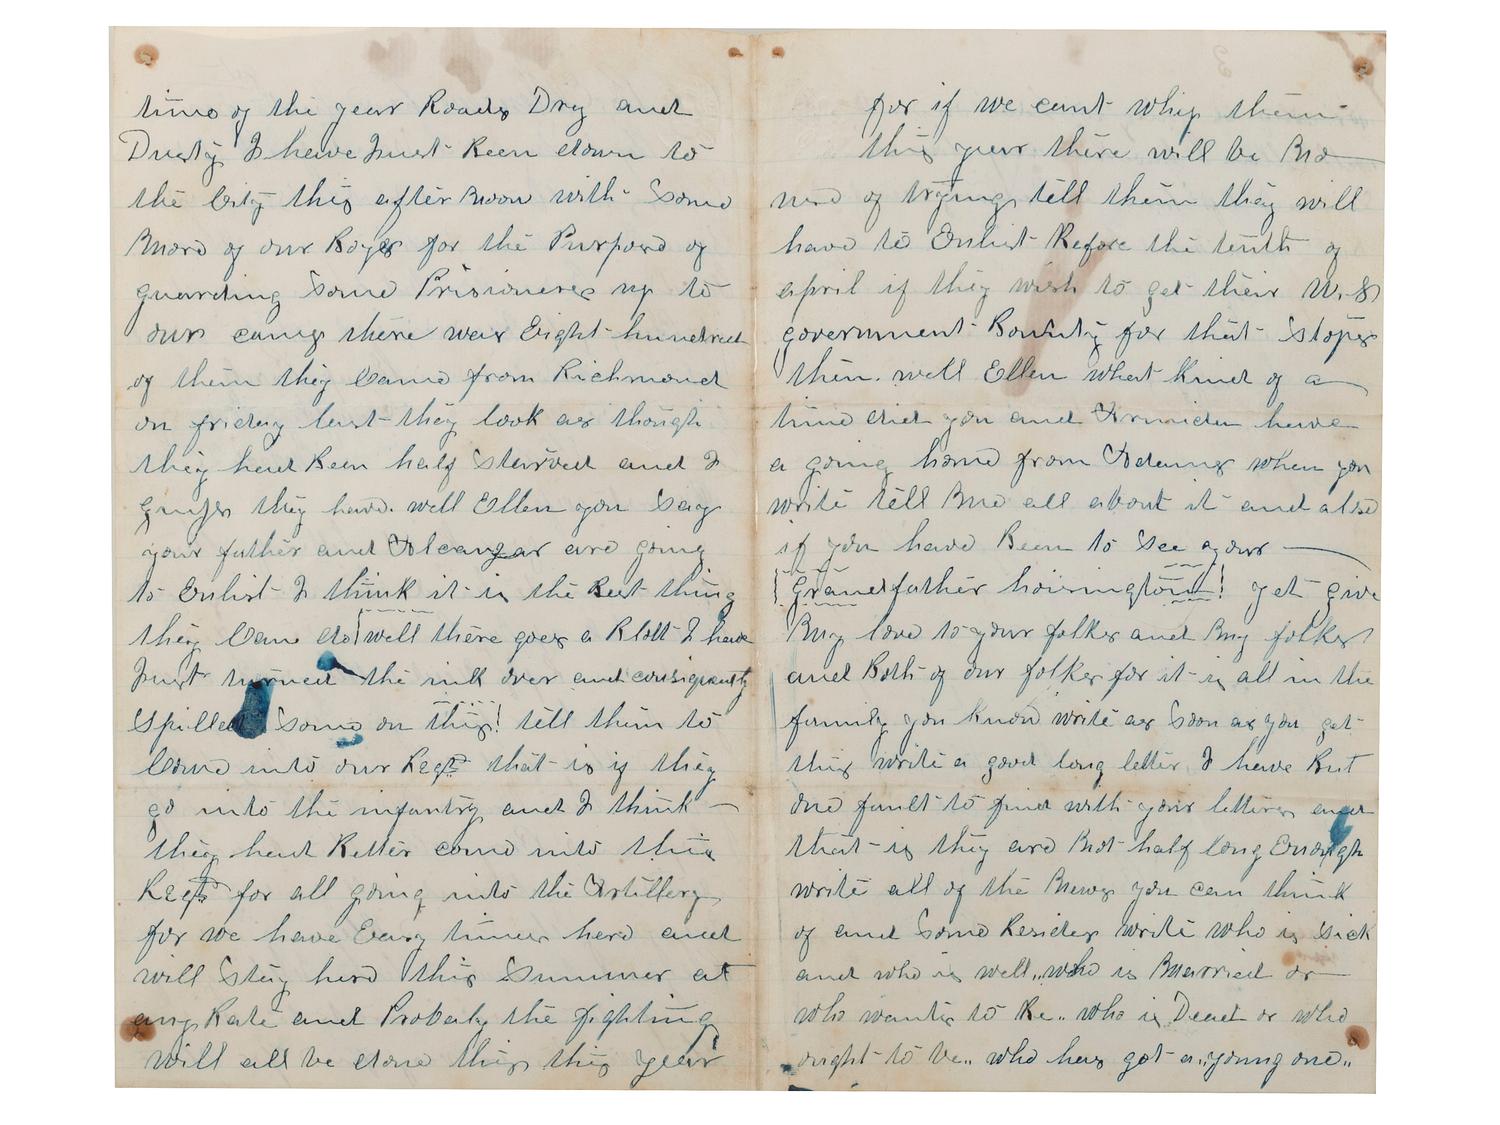 time of the year Roads Dry and
Dusty I have Just Been down to
the City this after noon with Some
more of our Boys for the Purpose of
guarding Some Prisioneres up to
our camp there was Eight hundred
of them they Came from Richmond
on friday last they look as though
they had Been half Starved and I
guess they have. well Ellen you Say
your father and are going
to Enlist I think it is the Best thing
they Can do well there goes a Blott I have
Just turned the ink over and consiquently
Spilled Some on this! tell them to
Come into our Regt that is if they
go into the infantry and I think
they had Better come into this
Regt for all going into the Artillery
for we have Easy times here and
will Stay here this Summer at
any Rate and Probaly the fighting
will all be done this this year
for if we cant whip them
this year there will be no
use of trying tell them they will
have to Enlist Before the tenth of
april if they wish to get their U.S
government Bounty for that Stopes
then. well Ellen what kind of a
time did you and Armida have
a going home from Adams when you
write tell me all about it and also
if you have Been to See your
Grandfather hoisington! yet give
my love to your folkes and my folkes
and Both of our folkes for it is all in the
family you know write as Soon as you get
this write a good long letter I have But
one fault to find with your letters and
that is they are not half long Enough
write all of the News you can think
of and Some Besides write who is Sick
and who is well,, who is married or
who wants to Be,, who is Dead or who
ought to be,, who has got a,,young one,,